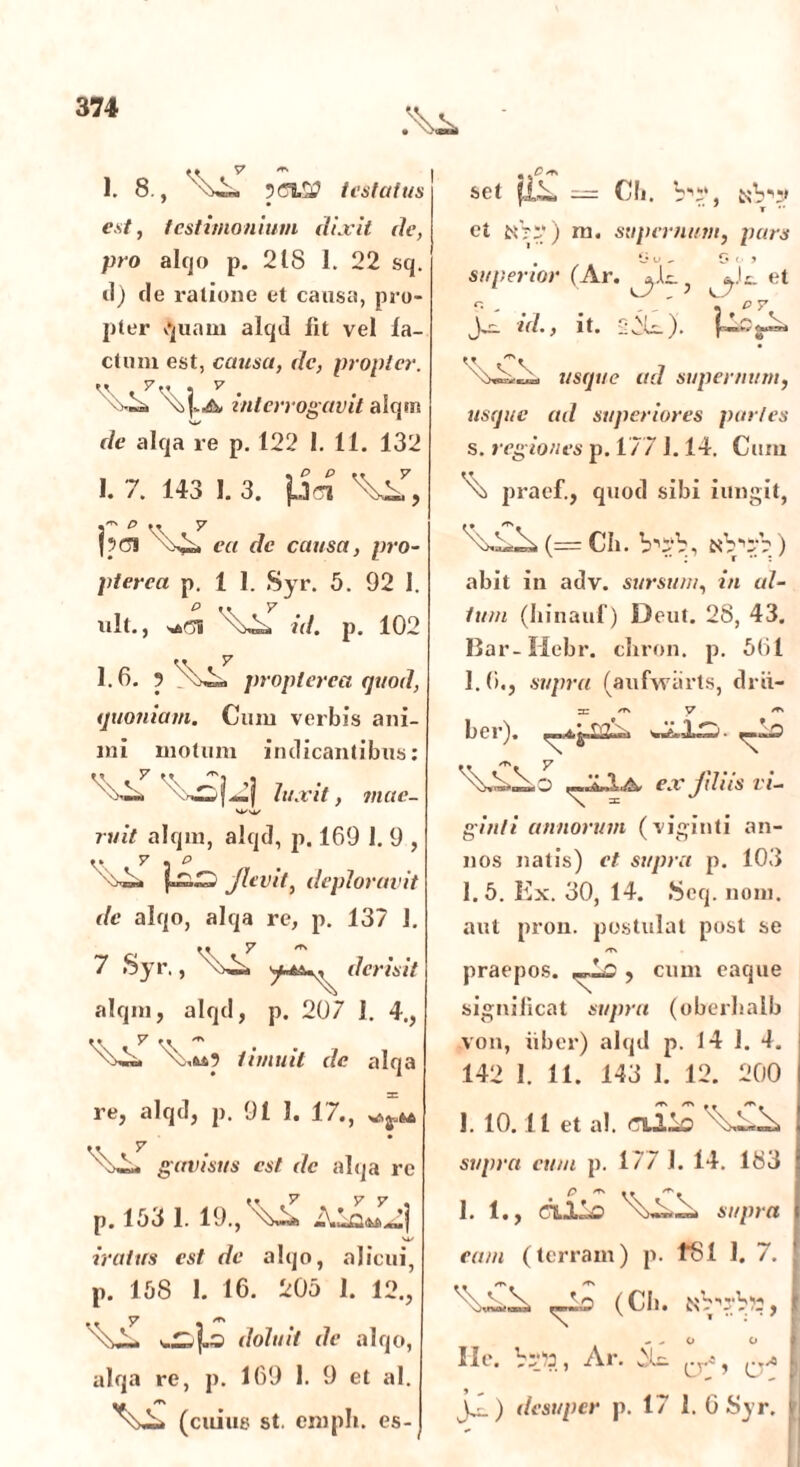 374
ܥܠ.
l. 8., ܥܰܠ ܣܗܕ testatus
est, testimonium dixit de,
pro alqo p. 218 l. 22 sq.
d) de ratione et causa, pro-
pter quam alqd fit vel fa-
ctum est, causa, de, propter.
ܫܰܐܶܠ ܥܰܠ interrogavit alqm
de alqa re p. 122 l. 11. 132
l. 7. 143 l. 3. ܥܰܠ ܗܳܠܶܝܢ,
ܥܰܠ ܗܳܕܶܐ ea de causa, pro-
pterea p. 1 l. Syr. 5. 92 l.
ult., ܥܰܠ ܗܳܝ id. p. 102
l. 6. ܥܰܠ ܕ propterea quod,
quoniam. Cum verbis ani-
mi motum indicantibus:
ܐܶܬܐܒܶܠ ܥܰܠ luxit, mae-
ruit alqm, alqd, p. 169 l. 9 ,
ܒܟܳܐ ܥܰܠ flevit, deploravit
de alqo, alqa re, p. 137 l.
7 Syr., ܓܚܶܟ ܥܰܠ derisit
alqm, alqd, p. 207 l. 4.,
ܕܚܶܠ ܥܰܠ timuit de alqa
re, alqd, p. 91 l. 17., ܚܕܝ
ܥܰܠ gavisus est de alqa re
p. 153 l. 19., ܐܶܬܚܰܡܰܬ ܥܰܠ
iratus est de alqo, alicui,
p. 158 l. 16. 205 l. 12.,
ܟܐܶܒ ܥܰܠ doluit de alqo,
alqa re, p. 169 l. 9 et al.
ܥܶܠ (cuius st. emph. es-
set ܥܶܠܳܐ = Ch. עֵיל, עֵילָא
et עֵלָּא) m. supernum, pars
superior (Ar. عِلْو, عُلْو et
عَلُ id., it. عَلَاة). ܥܕܰܡܳܐ
ܠܥܶܠ usque ad supernum,
usque ad superiores partes
s. regiones p. 177 l. 14. Cum
ܠ praef., quod sibi iungit,
ܠܥܶܠ (= Ch. לְעֵיל, לְעֵילָא)
abit in adv. sursum, in al-
tum (hinauf) Deut. 28, 43.
Bar-Hebr. chron. p. 561
l. 6., supra (aufwärts, drü-
ber). ܡܶܢ ܒܢܰܝ ܥܶܣܪܝܢ
ܫܢܝܢ ܘܰܠܥܶܠ ex filiis vi-
ginti annorum (viginti an-
nos natis) et supra p. 103
l. 5. Ex. 30, 14. Seq. nom.
aut pron. postulat post se
praepos. ܡܶܢ, cum eaque
significat supra (oberhalb
von, über) alqd p. 14 l. 4.
142 l. 11. 143 l. 12. 200
l. 10. 11 et al. ܠܥܶܠ ܡܶܢܶܗ
supra eum p. 177 l. 14. 183
l. 1., ܠܥܶܠ ܡܶܢܳܗ supra
eam (terram) p. 181 l. 7.
ܡܶܢ ܠܥܶܠ (Ch. מִלְּעֵילָא,
He. מֵעַל, Ar. مِنْ عَلِ, مِنْ
عَلُ) desuper p. 17 l. 6 Syr.